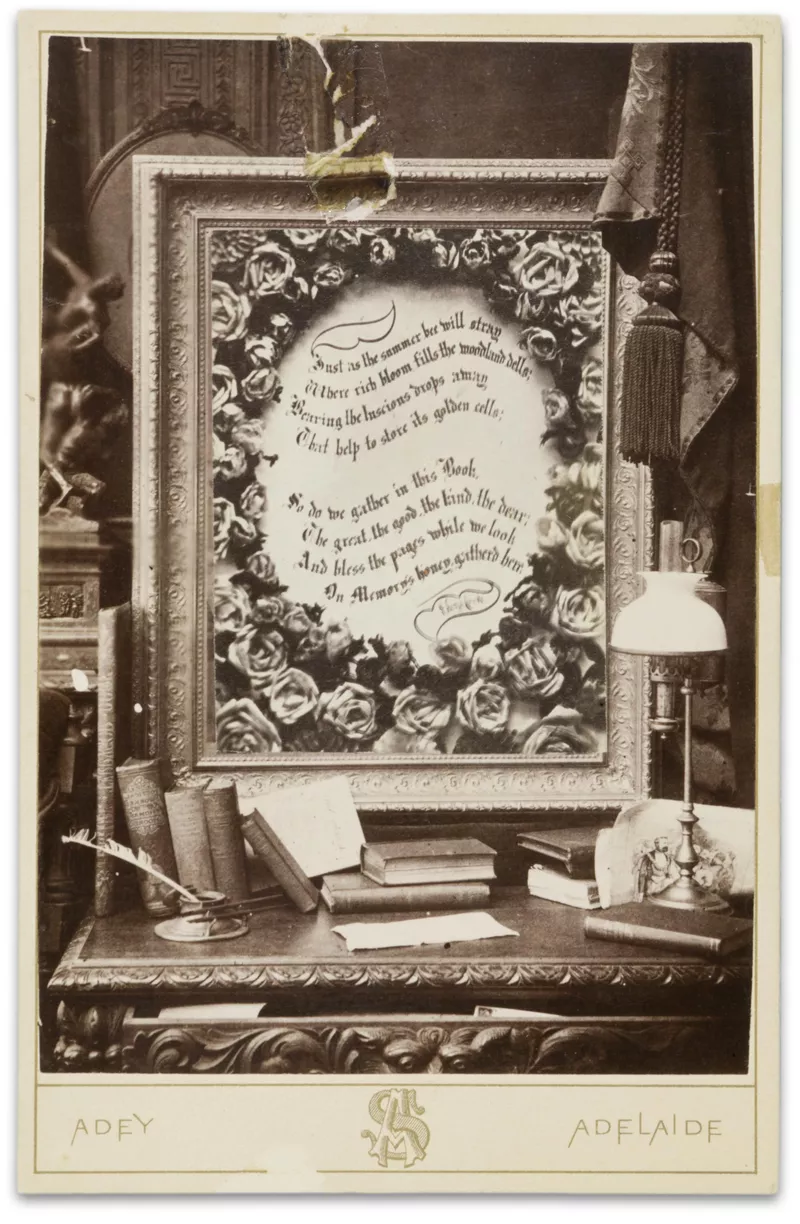 Just as the summer bee will stray,
Where rich bloom fills the woodland dells;
Bearing the luscious drops away
That help to store its golden cells;
So do we gather in this Book,
The great, the good, the kind, the dear;
And bless the pages while we look
On Memory's honey, gatherd here.
ADEY
ADELAIDE